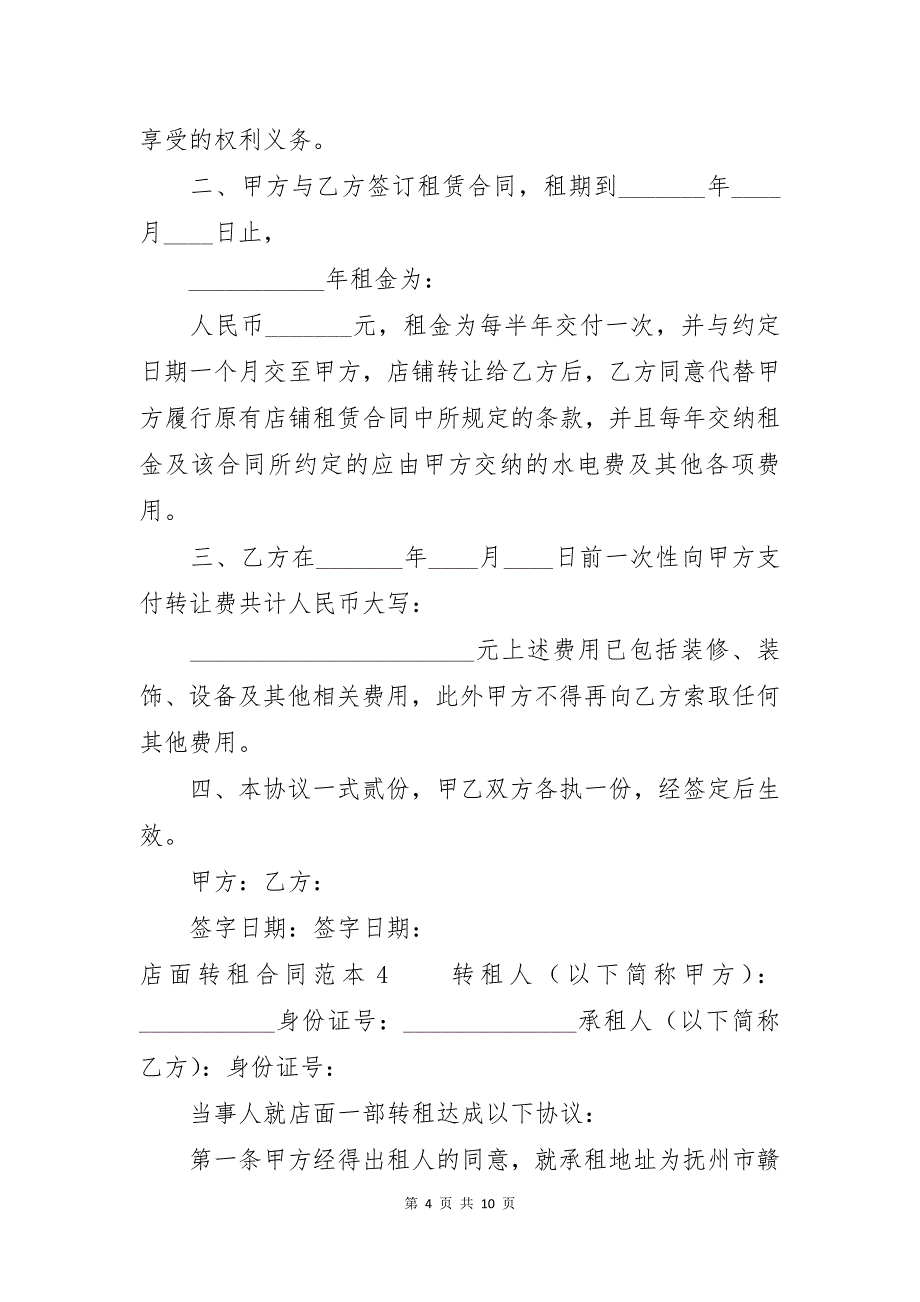 享受的权利义务。
二、甲方与乙方签订租赁合同，租期到_______年____
月____日止，
___________年租金为：
人民币_______元，租金为每半年交付一次，并与约定
日期一个月交至甲方，店铺转让给乙方后，乙方同意代替甲
方履行原有店铺租赁合同中所规定的条款，并且每年交纳租
金及该合同所约定的应由甲方交纳的水电费及其他各项费
用。
三、乙方在_______年____月____日前一次性向甲方支
付转让费共计人民币大写：
_______________________元上述费用已包括装修、装
饰、设备及其他相关费用，此外甲方不得再向乙方索取任何
其他费用。
四、本协议一式贰份，甲乙双方各执一份，经签定后生
效。
甲方：乙方：
签字日期：签字日期：
店面转租合同范本 4 转租人（以下简称甲方）：
___________身份证号：______________承租人（以下简称
乙方）：身份证号：
当事人就店面一部转租达成以下协议：
第一条甲方经得出租人的同意，就承租地址为抚州市赣
第 4 页 共 10 页